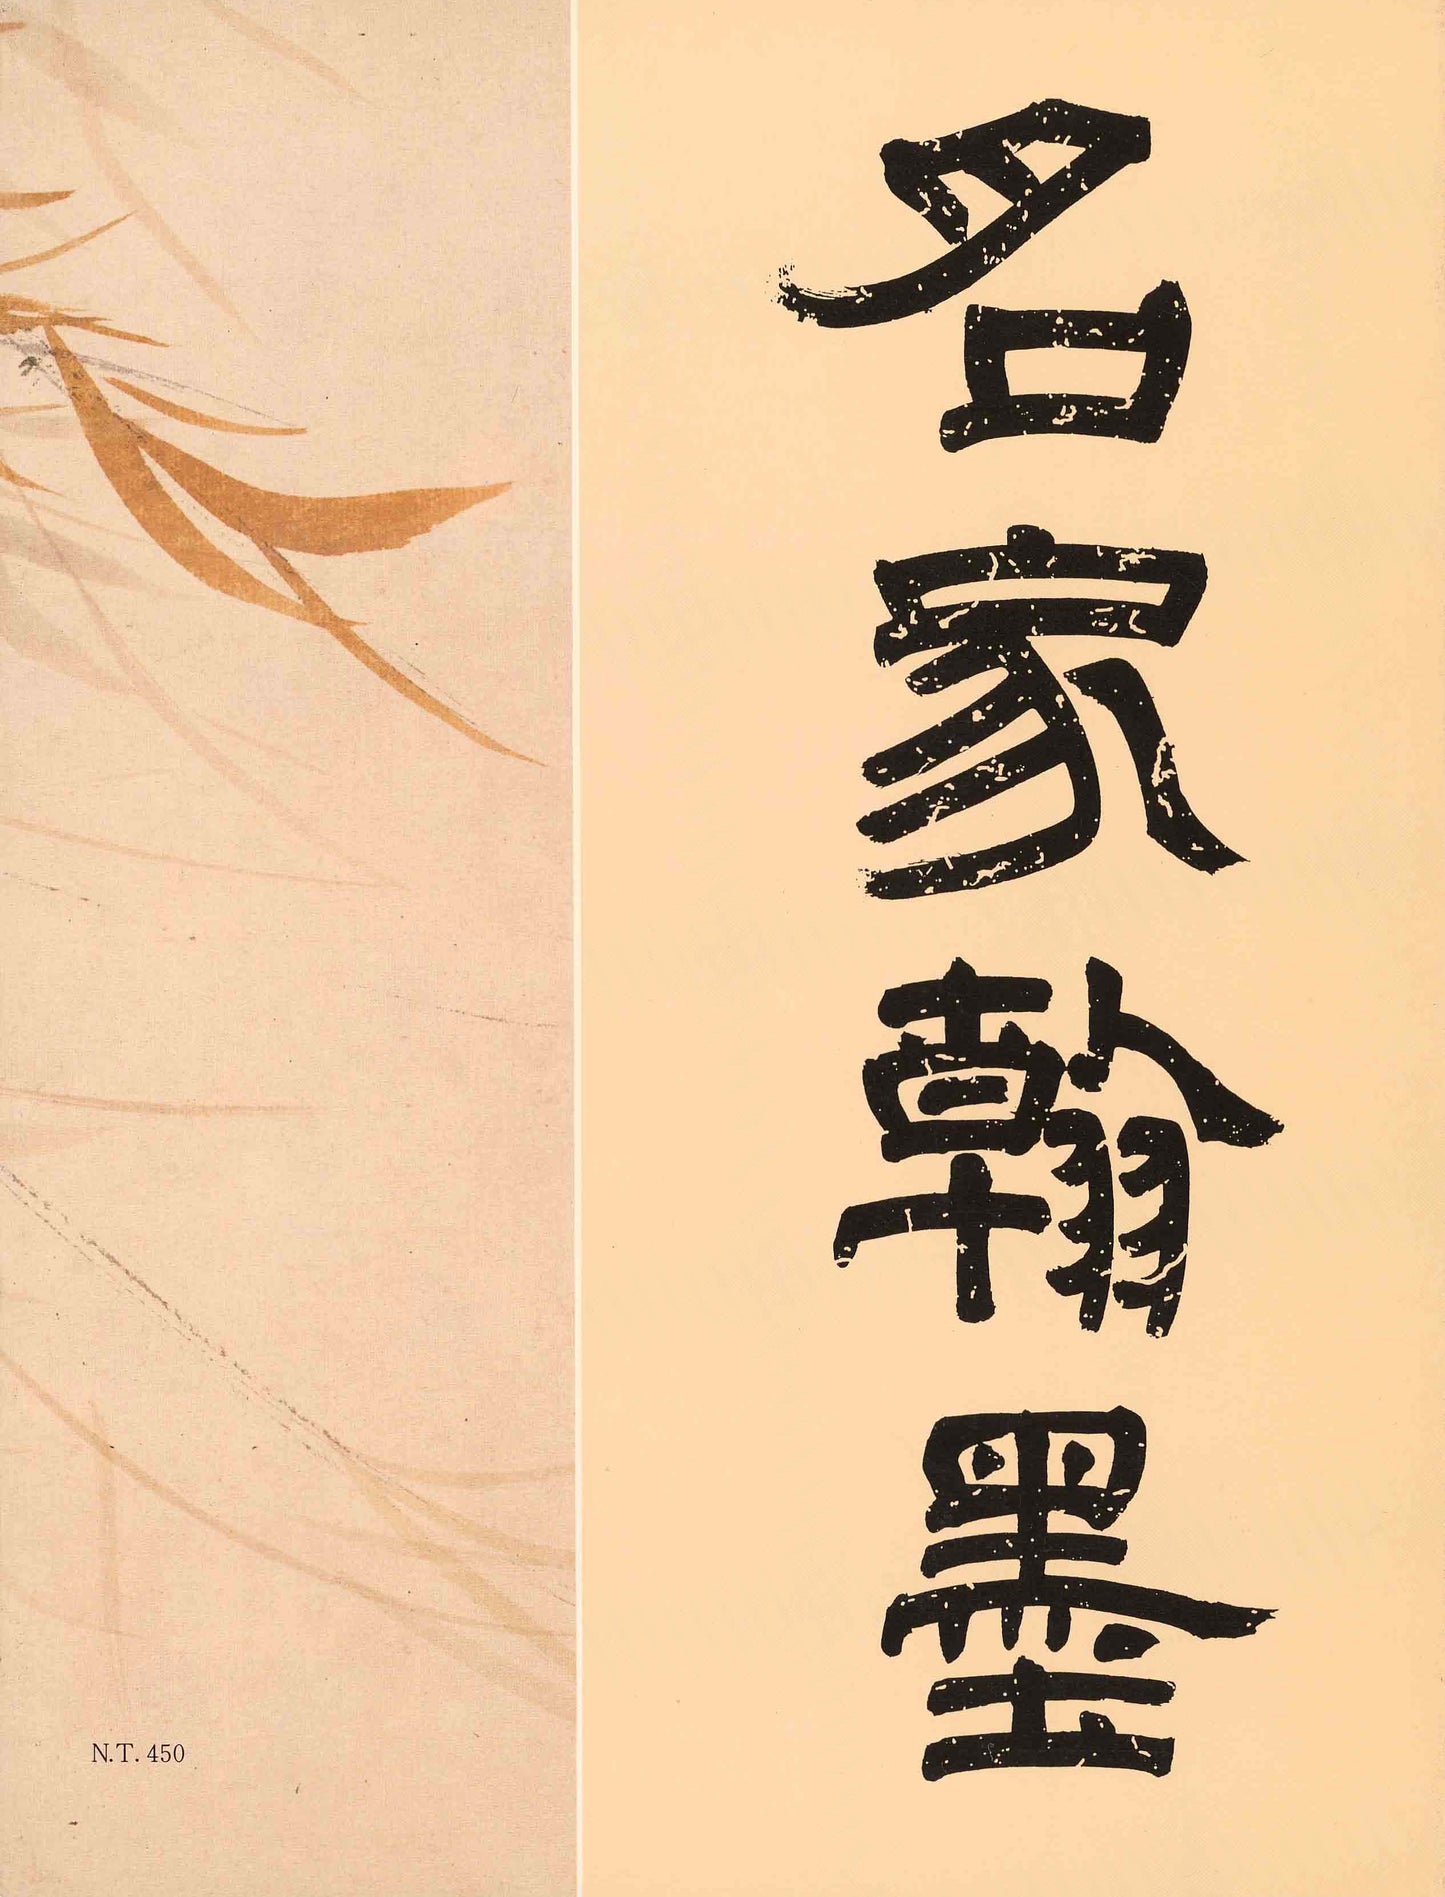 名家翰墨
N.T. 450